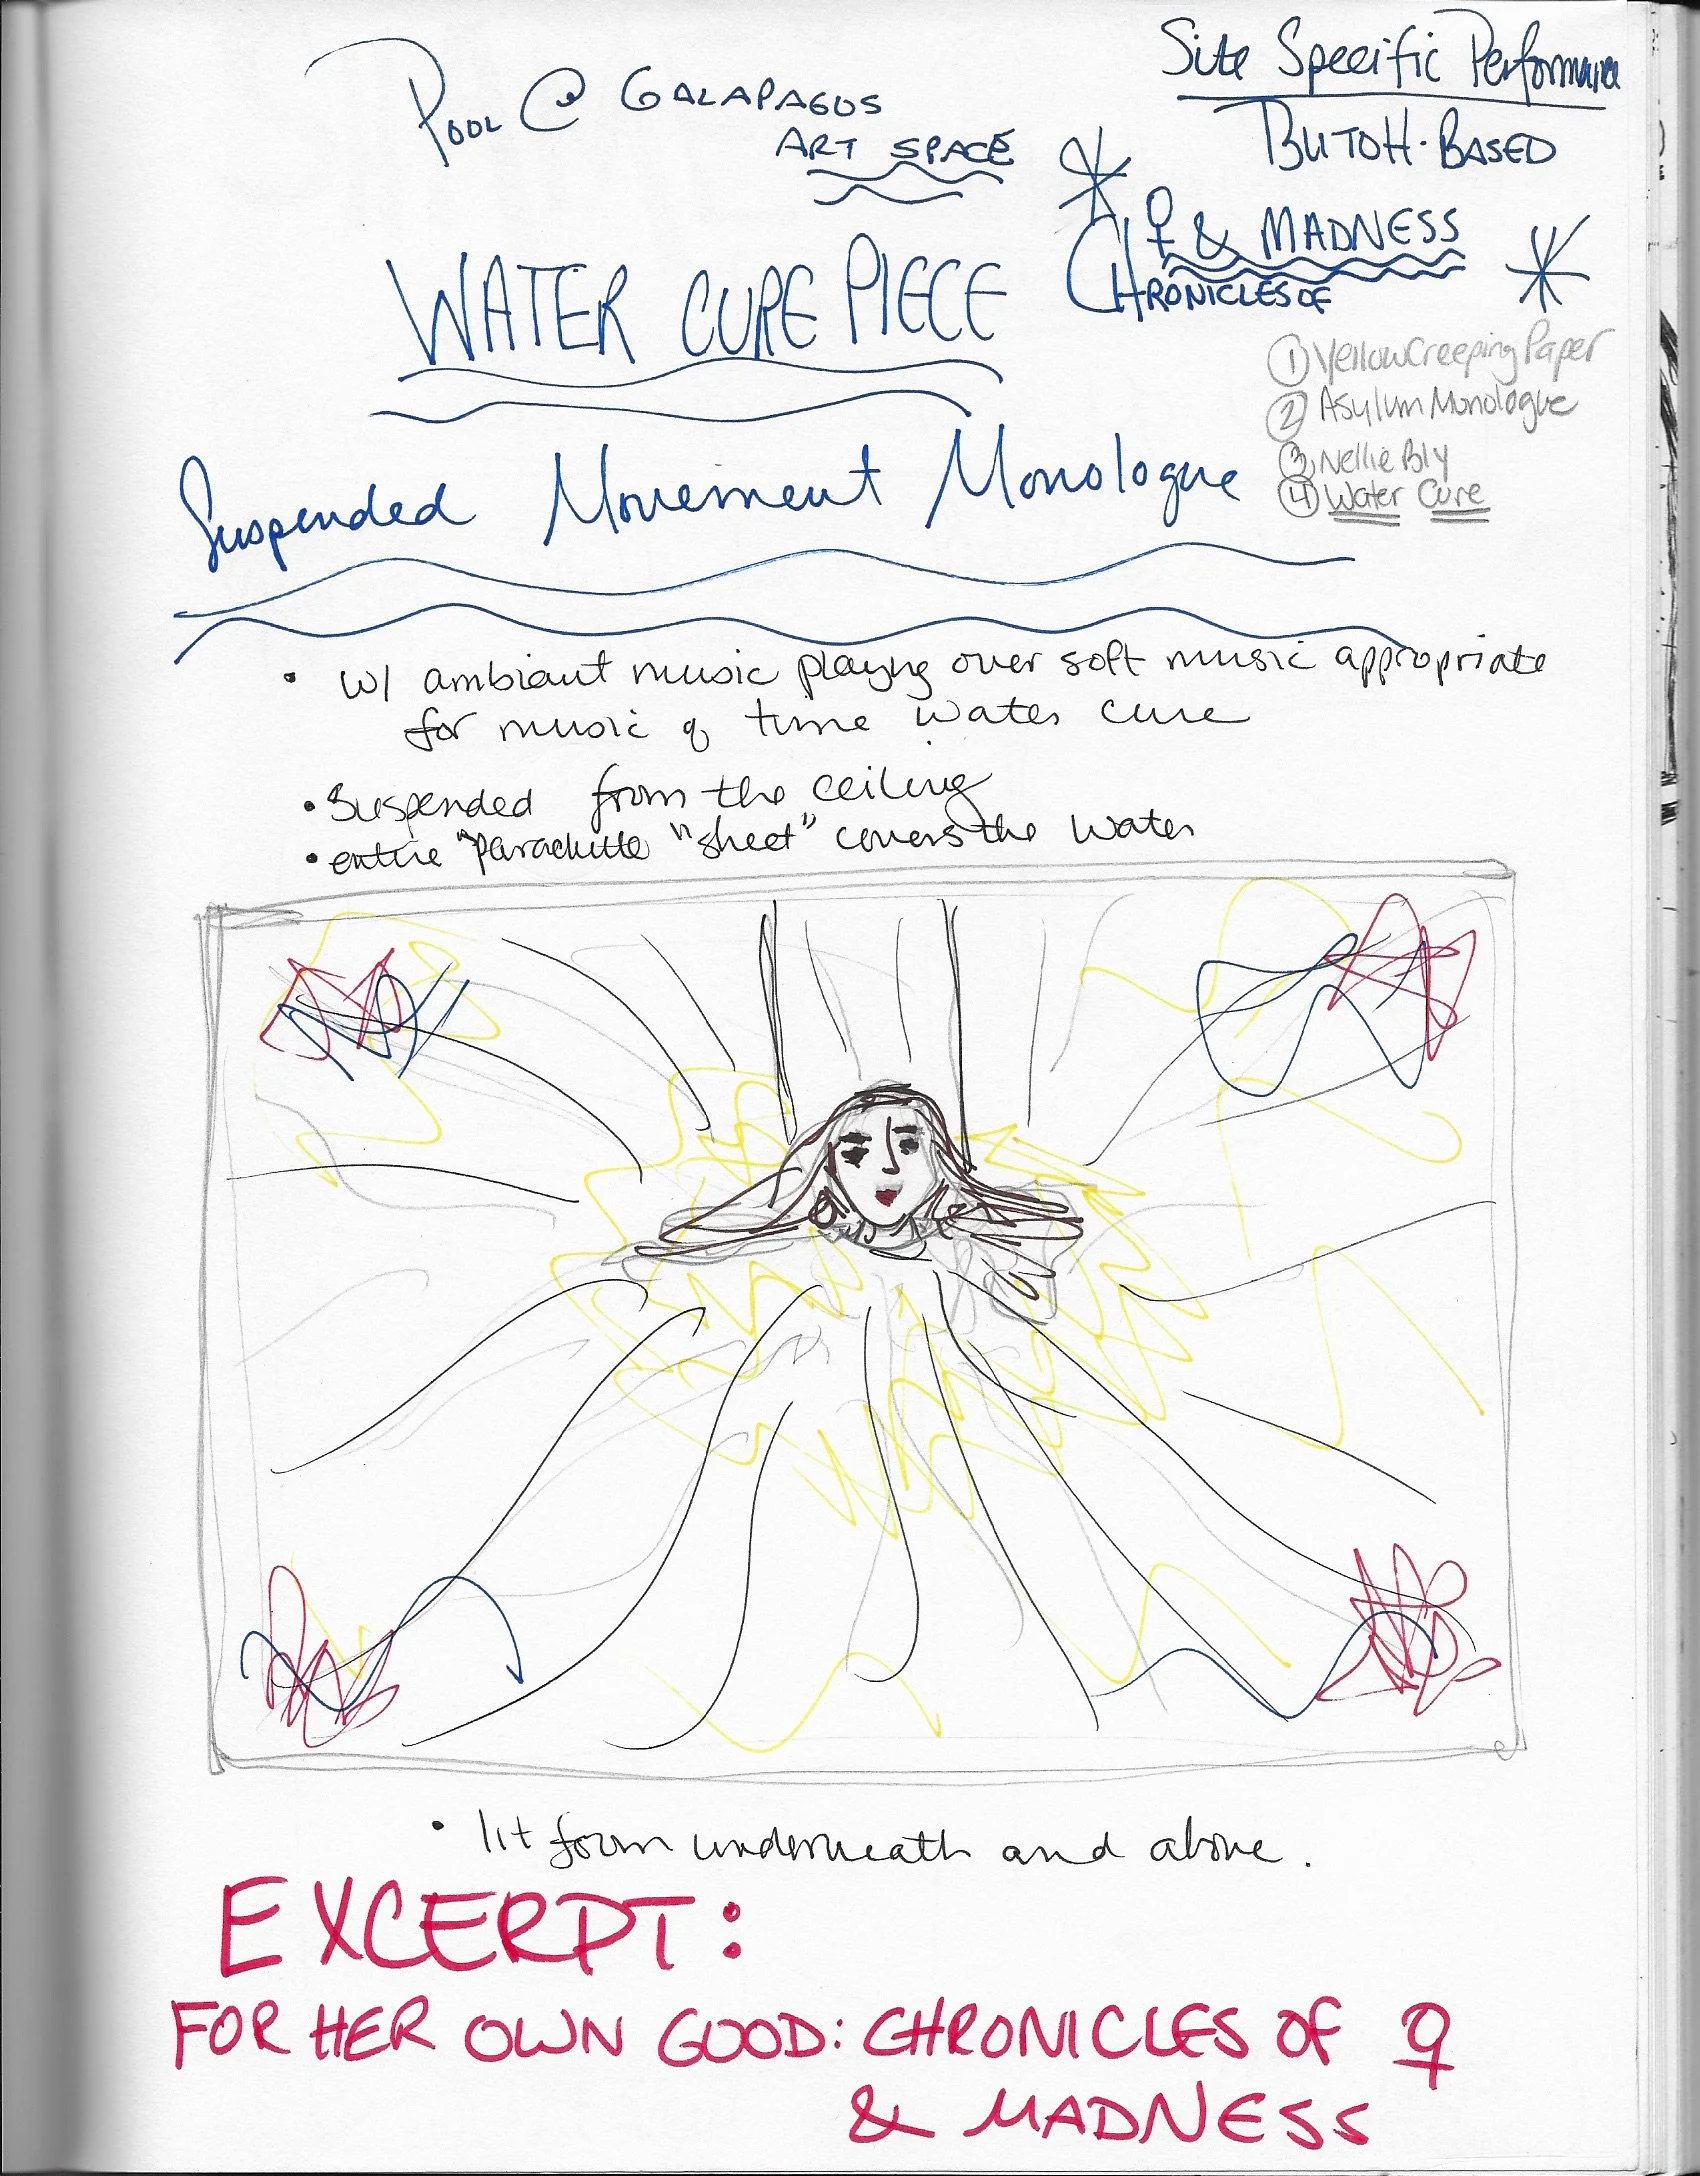 Pool @ GALAPAGOS
ART SPACE
Site Specific Performance
BUTOH-BASED
♀ & MADNESS
CHRONICLES OF
WATER CURE PIECE
① Yellow Creeping Paper
② Asylum Monologue
③ Nellie Bly
④ Water Cure
Suspended Movement Monologue
• w/ ambiant music playing over soft music appropriate
for music of time water cure
• Suspended from the ceiling
• entire "Parachutte" "sheet" covers the water
• lit from underneath and above.
EXCERPT:
FOR HER OWN GOOD: CHRONICLES OF ♀
& MADNESS